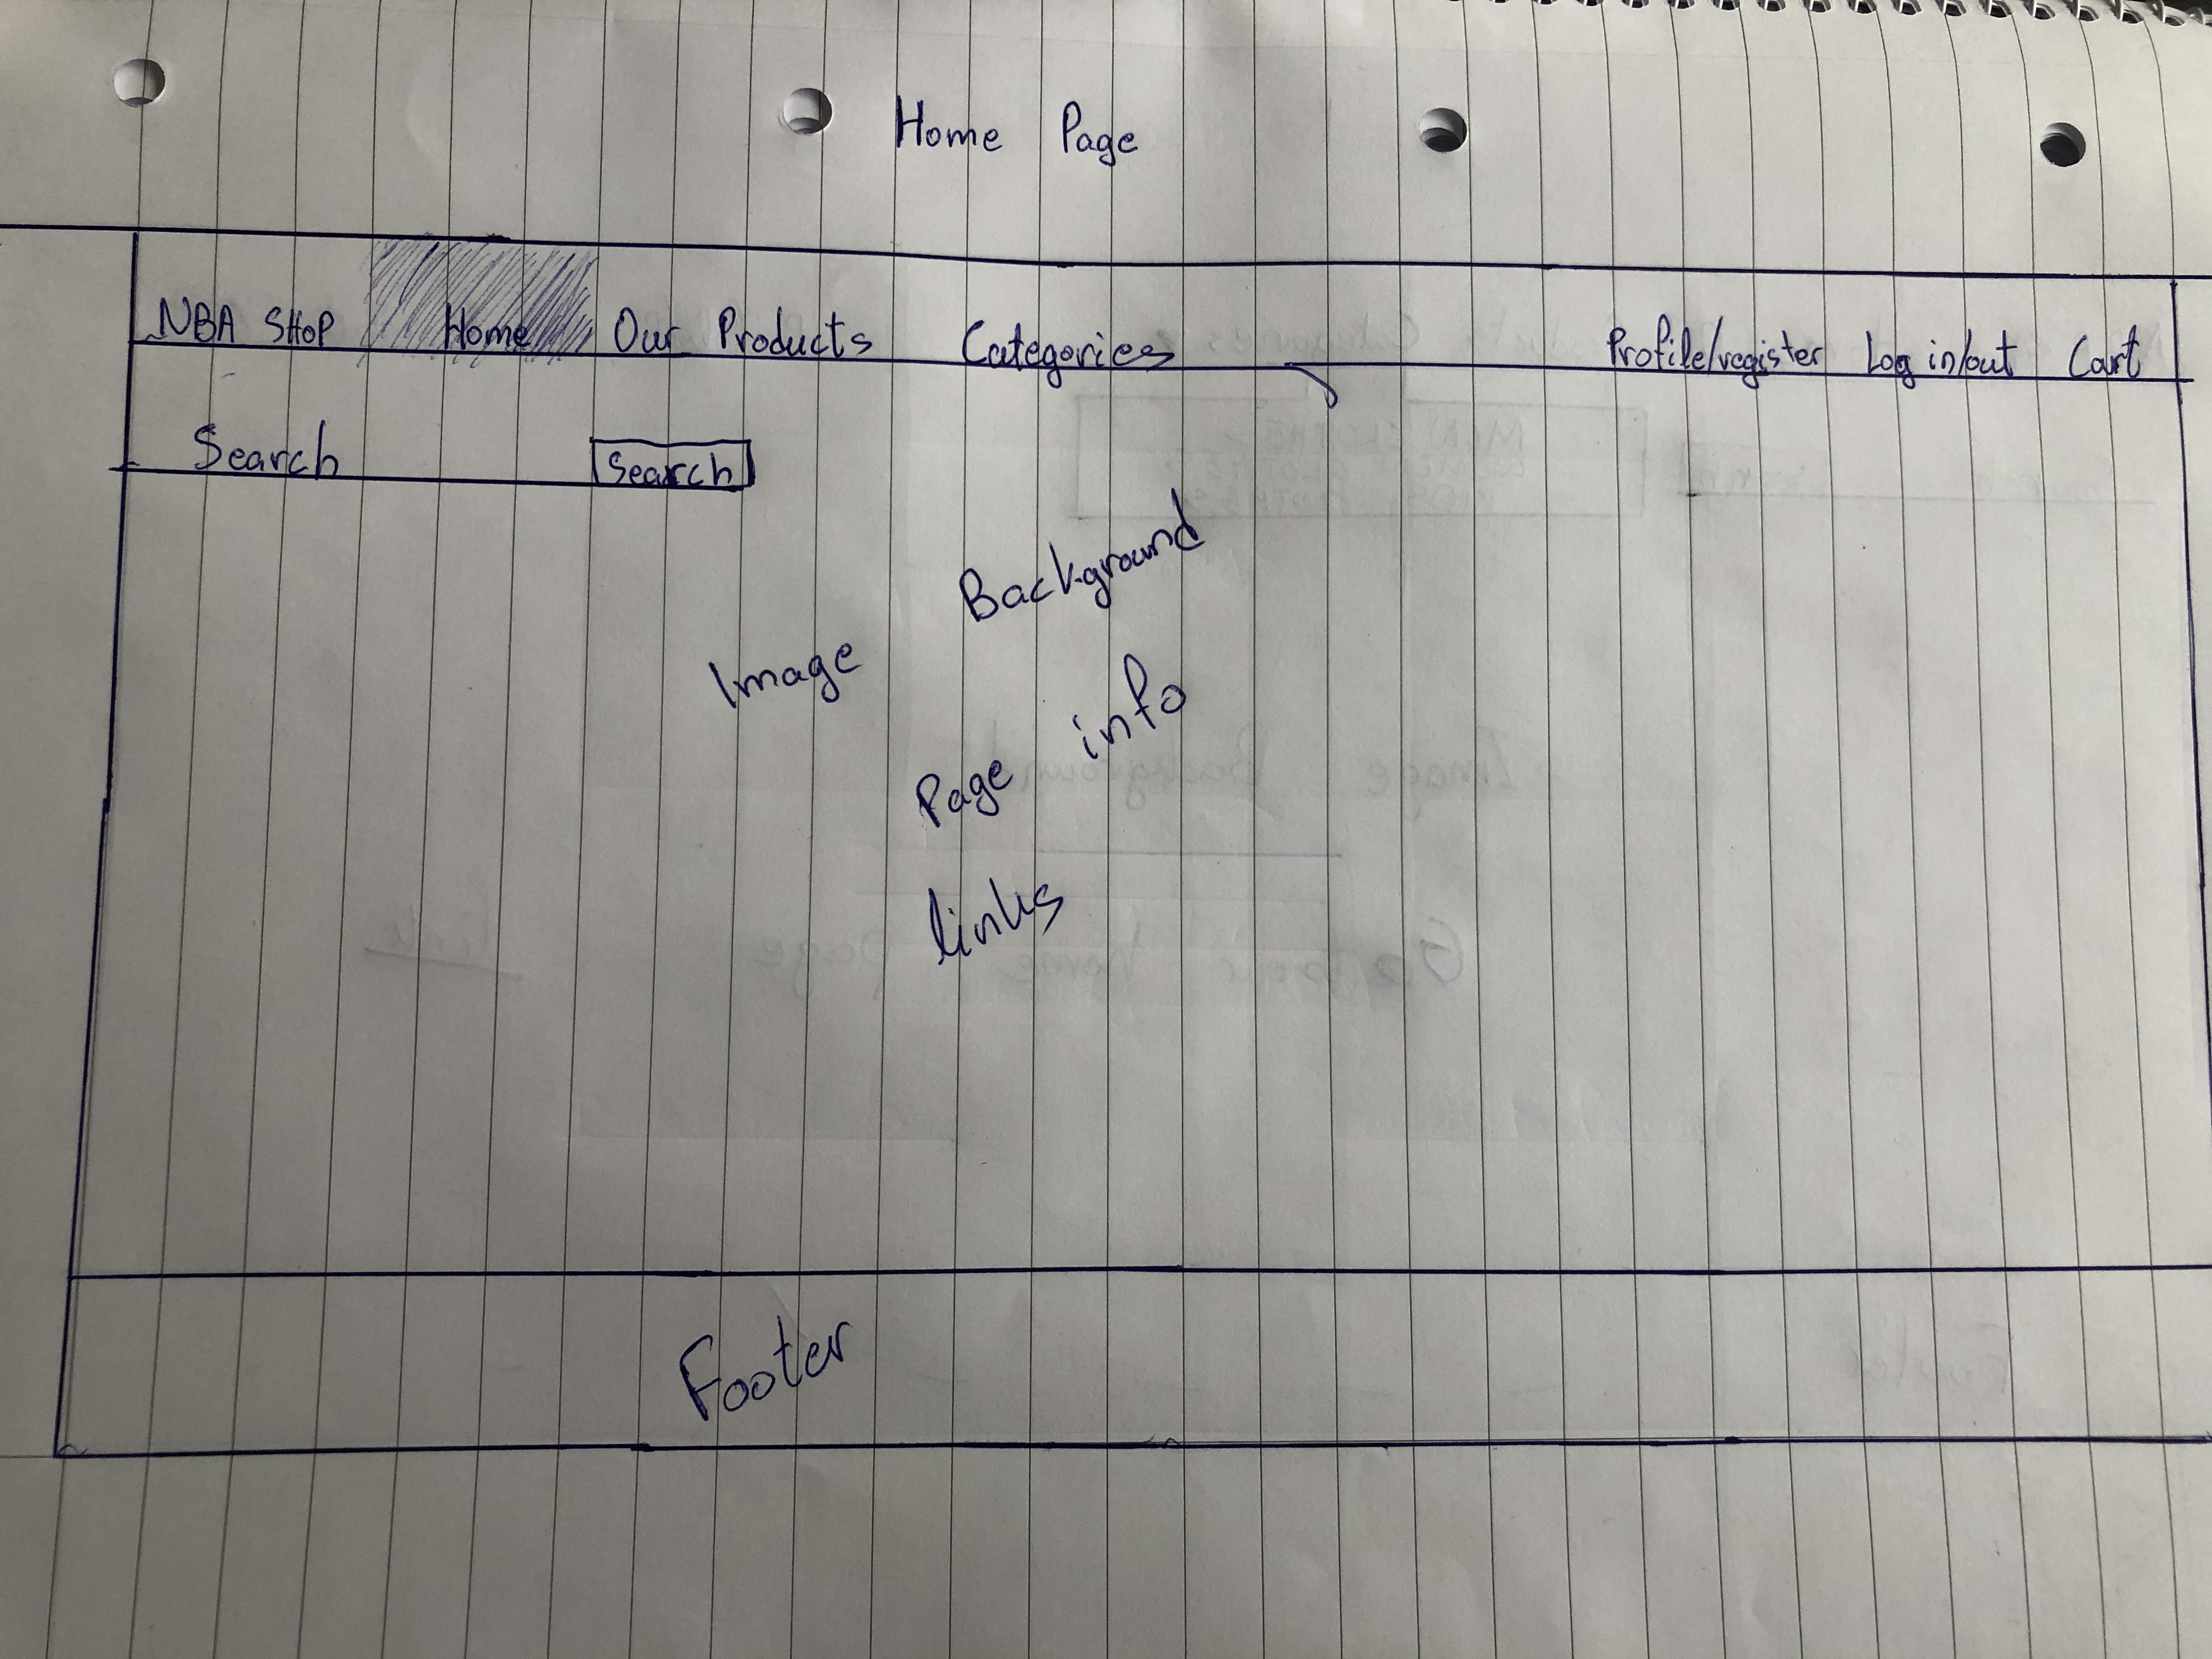 Home Page
NBA SHOP Home Our Products Categories Profile/register Log in/out Cart
Search Search
Image Background
Page info
links
Footer